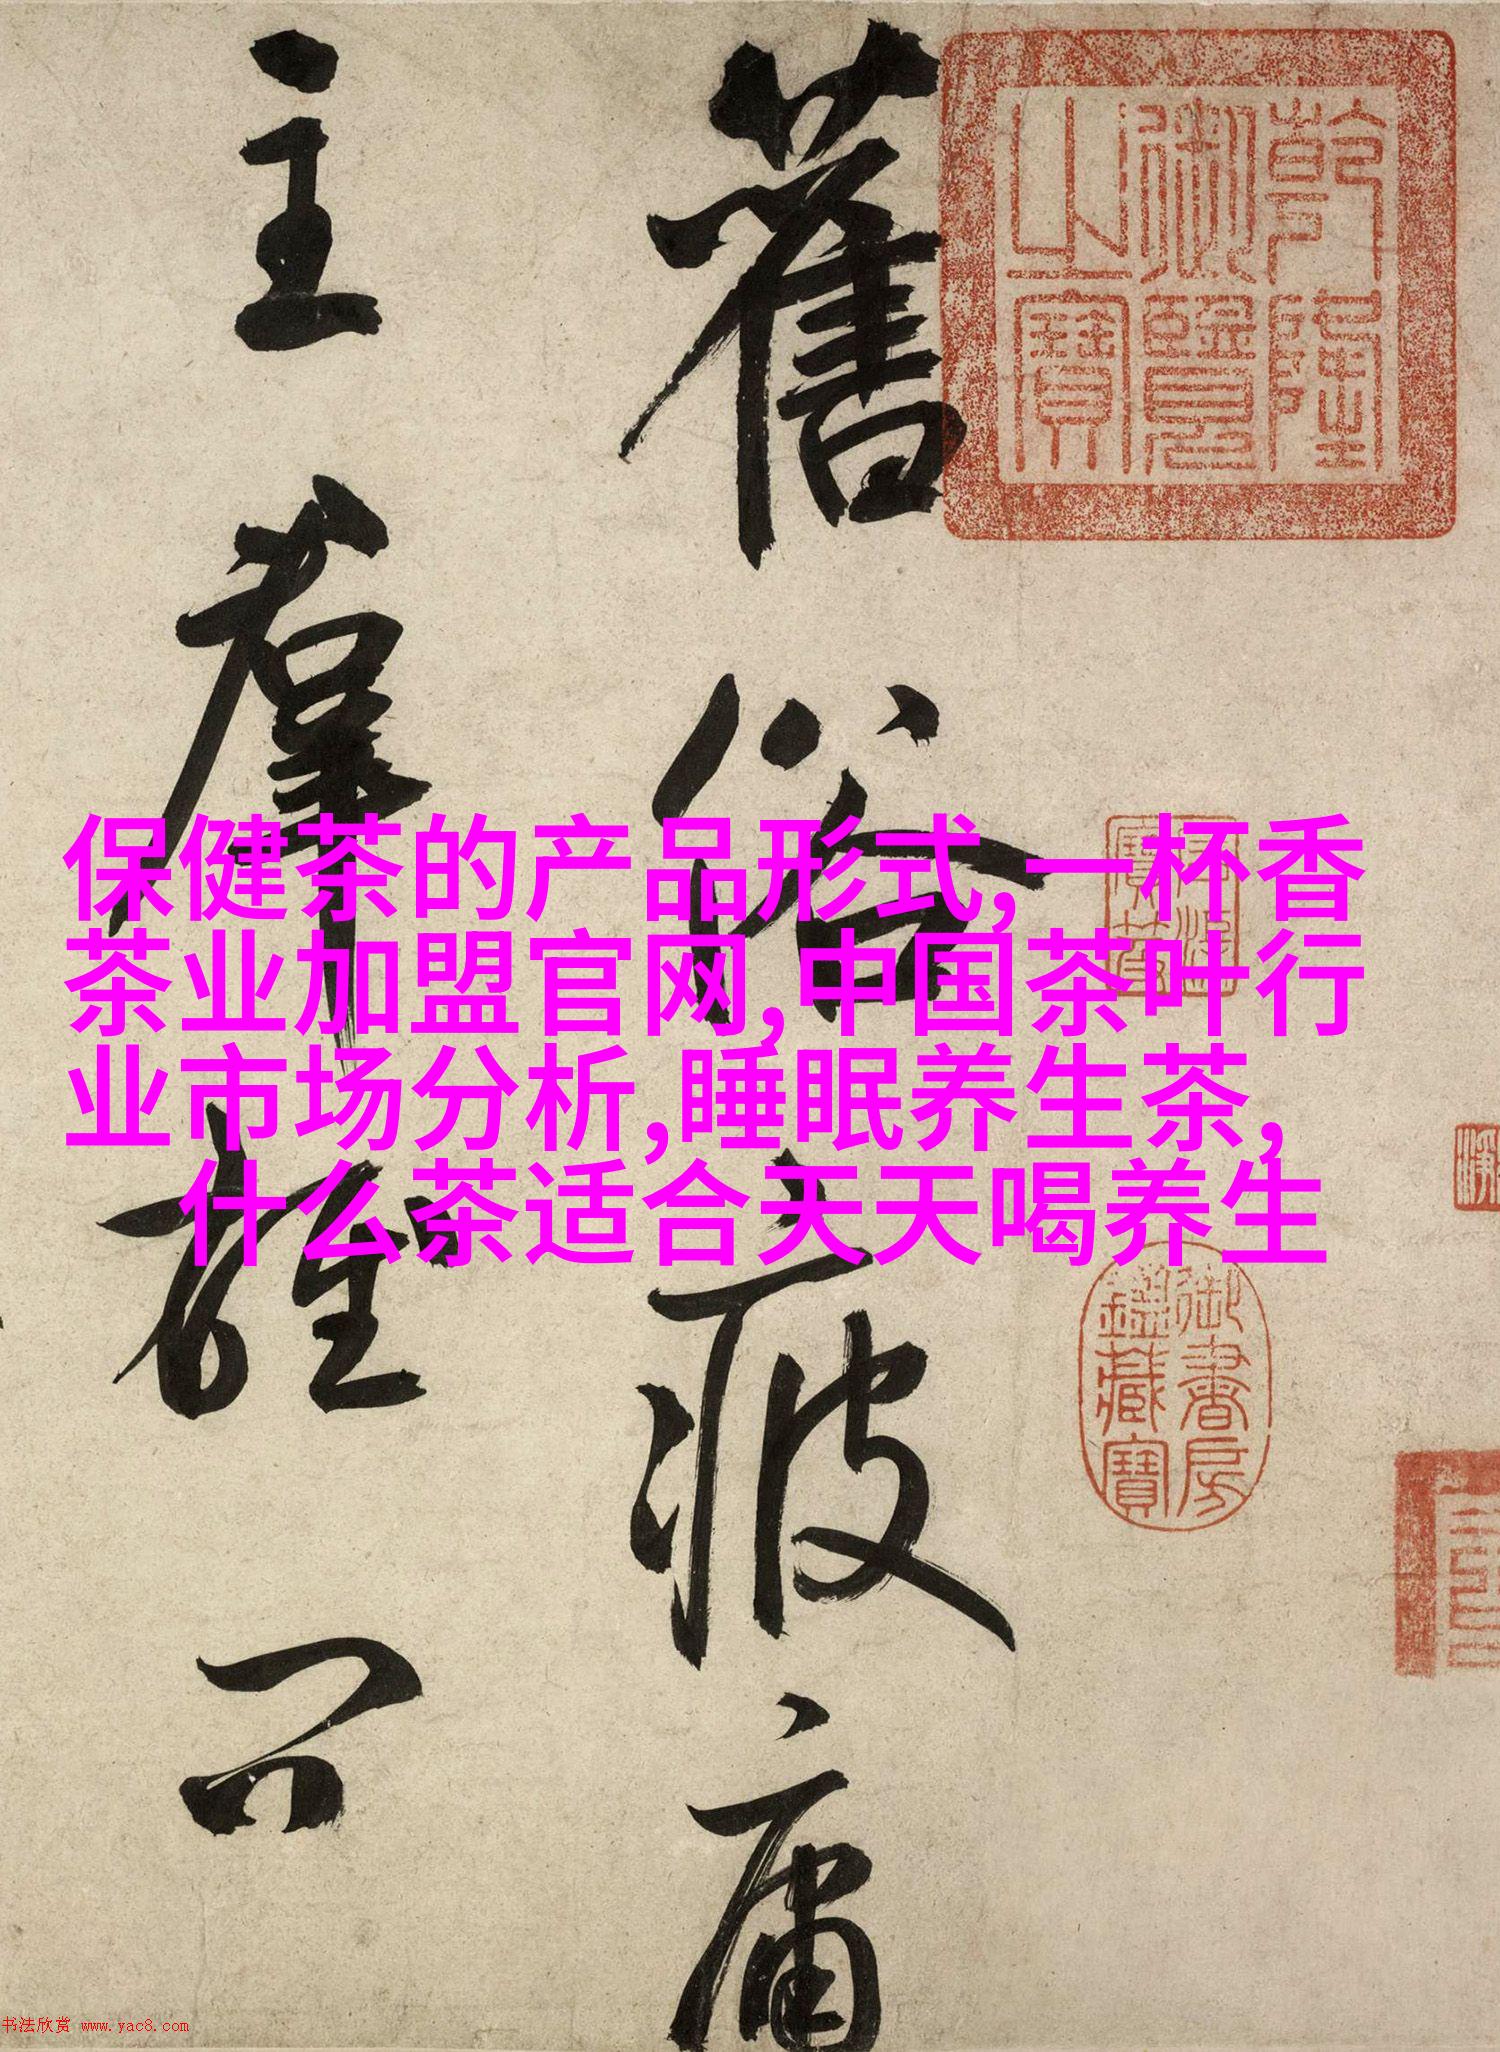 乾隆
御覽
之寶
舊俗疲庸
主羣雄问
保健茶的产品形式,一杯香
茶业加盟官网,中国茶叶行
业市场分析,睡眠养生茶,
什么茶适合天天喝养生
御書房
鑑藏寶
书法欣赏 www.yac8.com